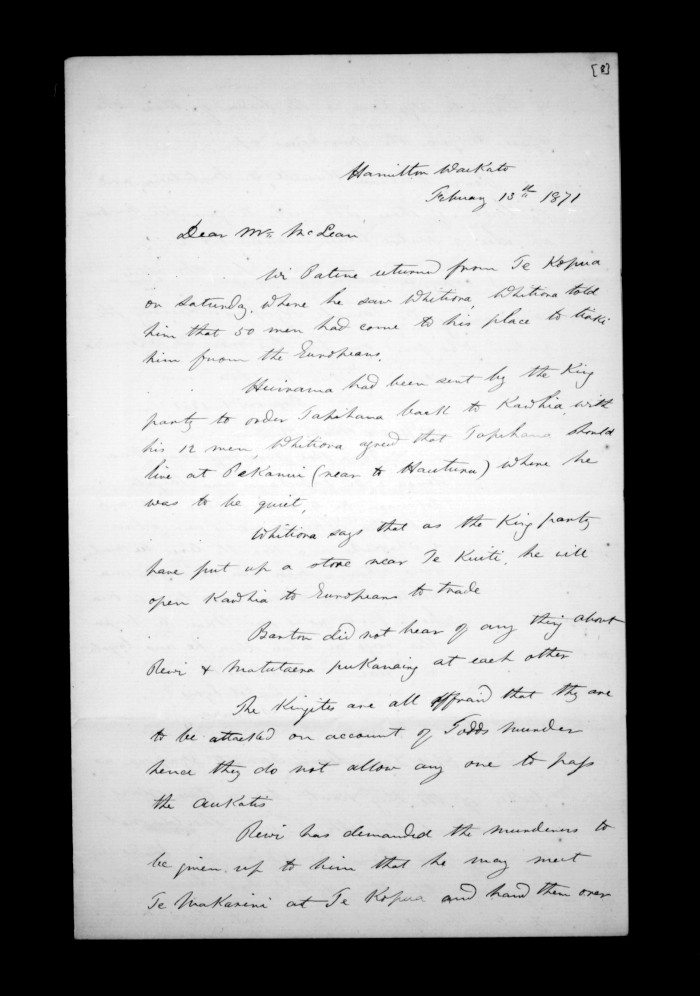 [8]
Hamilton Waikato
Febuary 13th 1871
Dear Mr. McLean
Wi Patene returned from Te Kopua
on Saturday, where he saw Whitiora, Whitiora told
him that 50 men had come to his place to tiaki
him from the Europeans.
Huirama had been sent by the King
party to order Tapihana back to Kawhia, with
his 12 men, Whitiora agreed that Tapihana should
live at Pekanui (near to Hauturu) where he
was to be quiet,
Whitiora says that as the King party
have put up a store near Te Kuiti, he will
open Kawhia to Europeans to trade
Barton did not hear of any thing about
Rewi & Matutaera pukanaing at each other
The Kingites are all affraid that they are
to be attacked on account of Todds murder
hence they do not allow any one to pass
the aukatis
Rewi has demanded the murderers to
be given up to him that he may meet
Te Makarini at Te Kopua and hand them over